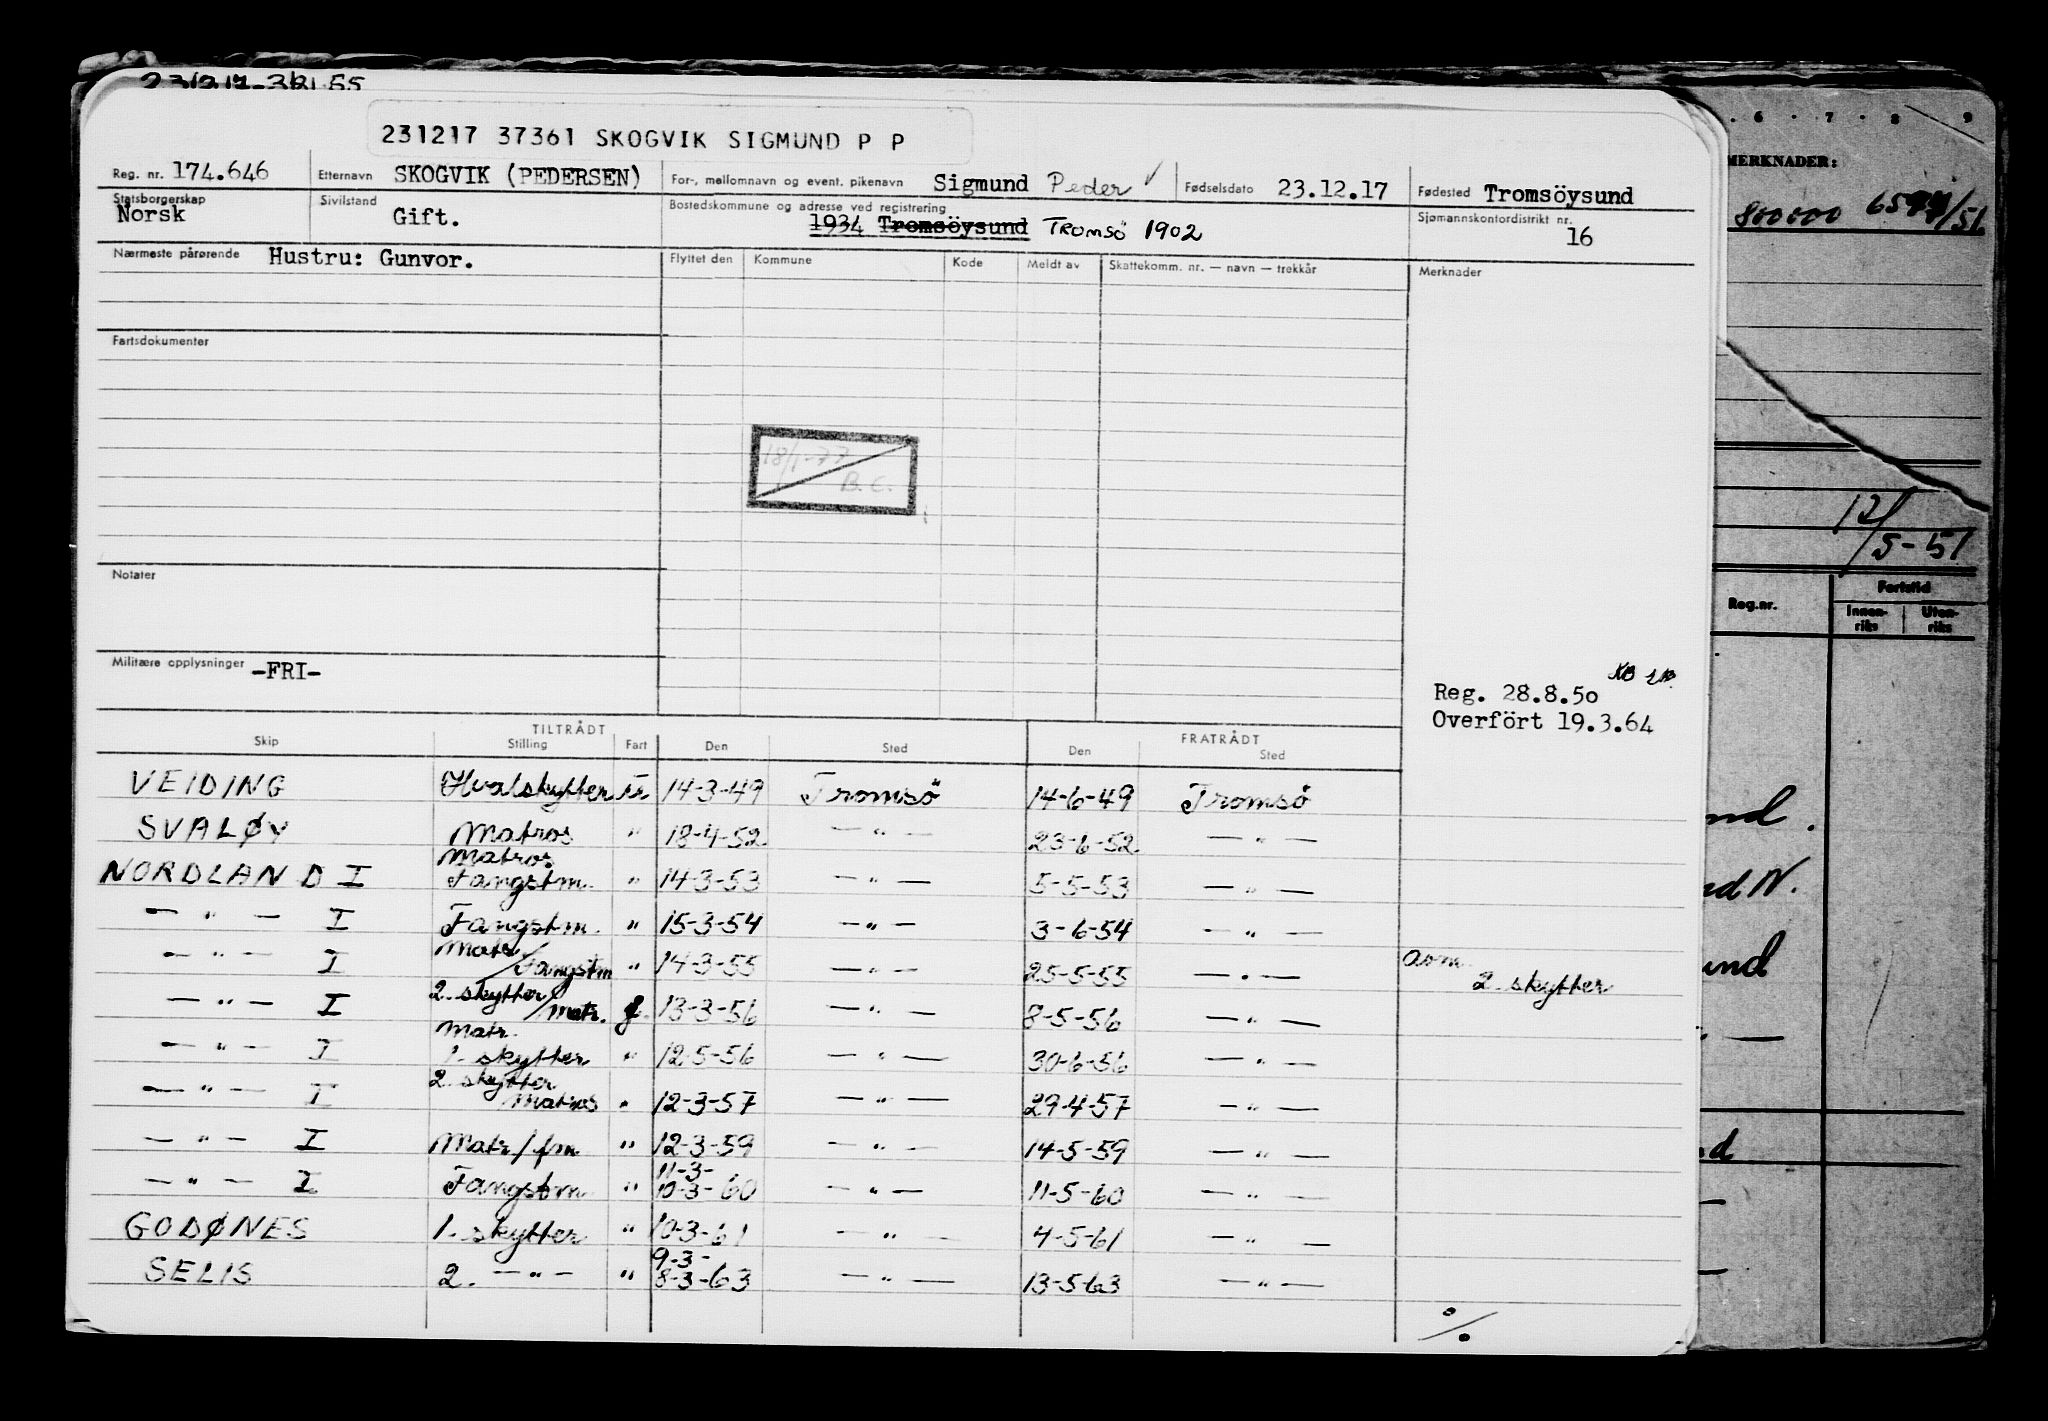 231217 37361 SKOGVIK SIGMUND P P
Reg. nr. 174.646 Etternavn SKOGVIK (PEDERSEN) For-, mellomnavn og event. pikenavn Sigmund Peder ✓ Fødselsdato 23.12.17 Fødested Tromsöysund
Statsborgerskap Norsk Sivilstand Gift. Bostedskommune og adresse ved registrering 1934 Tromsöysund TROMSÖ 1902 Sjømannskontordistrikt nr. 16
Nærmeste pårørende Hustru: Gunvor. Flyttet den Kommune Kode Meldt av Skattekomm. nr. — navn — trekkår Merknader
Fartsdokumenter
18/1-77
B.C.
Notater
Militære opplysninger -FRI-
Reg. 28.8.50
Overfört 19.3.64
TILTRÅDT FRATRÅDT
Skip Stilling Fart Den Sted Den Sted
VEIDING Hvalskytter 14-3-49 Tromsö 14-6-49 Tromsö
SVALØY Matros " 18-4-52 — " — 23-6-52 — " —
NORDLAND I Matros Fangstm. " 14-3-53 — " — 5-5-53 — " —
— " — I Fangstm. " 15-3-54 — " — 3-6-54 — " —
— " — I Matr/Fangstm " 14-3-55 — " — 25-5-55 — " — 2. skytter
— " — I 2. skytter/matr. 13-3-56 — " — 8-5-56 — " —
— " — I Matr. 1. skytter " 12-5-56 — " — 30-6-56 — " —
— " — I 2. skytter Matros " 12-3-57 — " — 29-4-57 — " —
— " — I Matr/fm " 12-3-59 — " — 14-5-59 — " —
— " — I Fangstm " 11-3- 10-3-60 — " — 11-5-60 — " —
GODØNES 1. skytter " 10-3-61 — " — 4-5-61 — " —
SELIS 2. — " — " 9-3- 8-3-63 — " — 13-5-63 — " —
6 · 7 · 8 9
MERKNADER:
800000
12/5-51
Reg.nr. Fartstid
Innen-riks Uten-riks